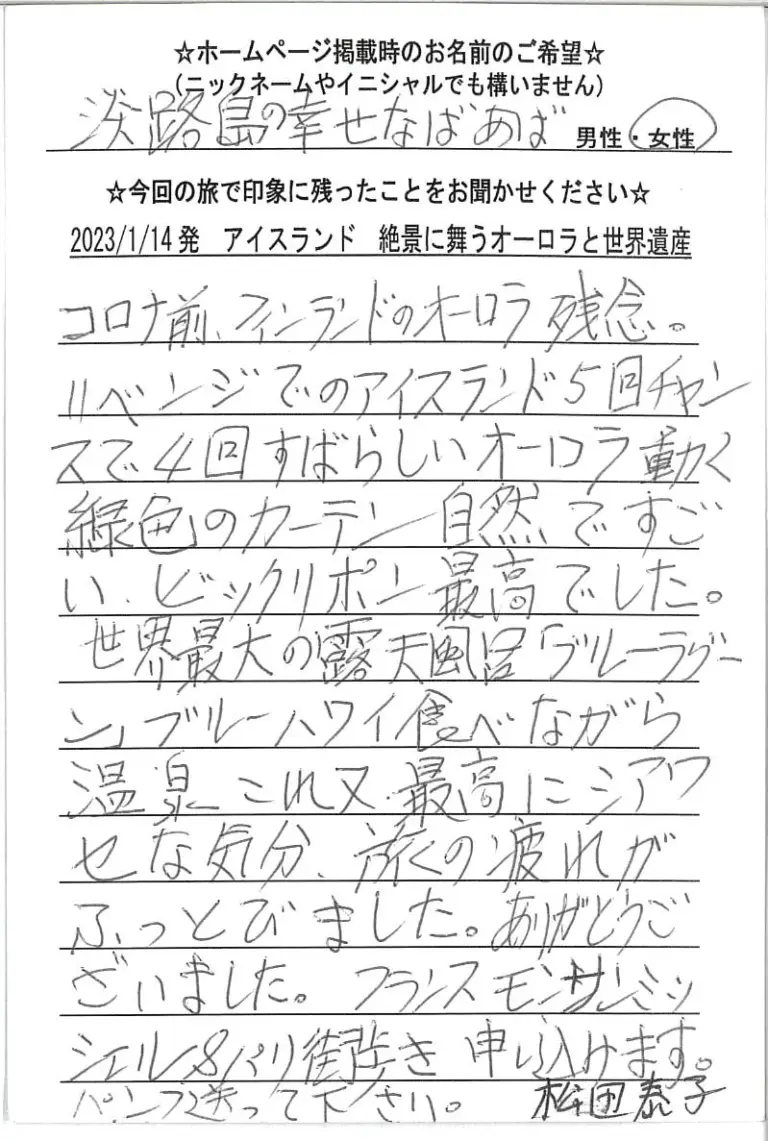 ☆ホームページ掲載時のお名前のご希望☆
(ニックネームやイニシャルでも構いません)
淡路島の幸せなばあば 男性・女性
☆今回の旅で印象に残ったことをお聞かせください☆
2023/1/14発 アイスランド 絶景に舞うオーロラと世界遺産
コロナ前、フィンランドのオーロラ残念。
リベンジでのアイスランド5回チャン
スで4回すばらしいオーロラ動く
緑色のカーテン自然ですご
い、ビックリポン最高でした。
世界最大の露天風呂「ブルーラグー
ン」ブルーハワイ食べながら
温泉これ又最高にシアワ
セな気分、旅の疲れが
ふっとびました。ありがとうご
ざいました。フランスモンサンミッ
シェル&パリ街歩き申し込けます。
パンフ送って下さい。 松田泰子